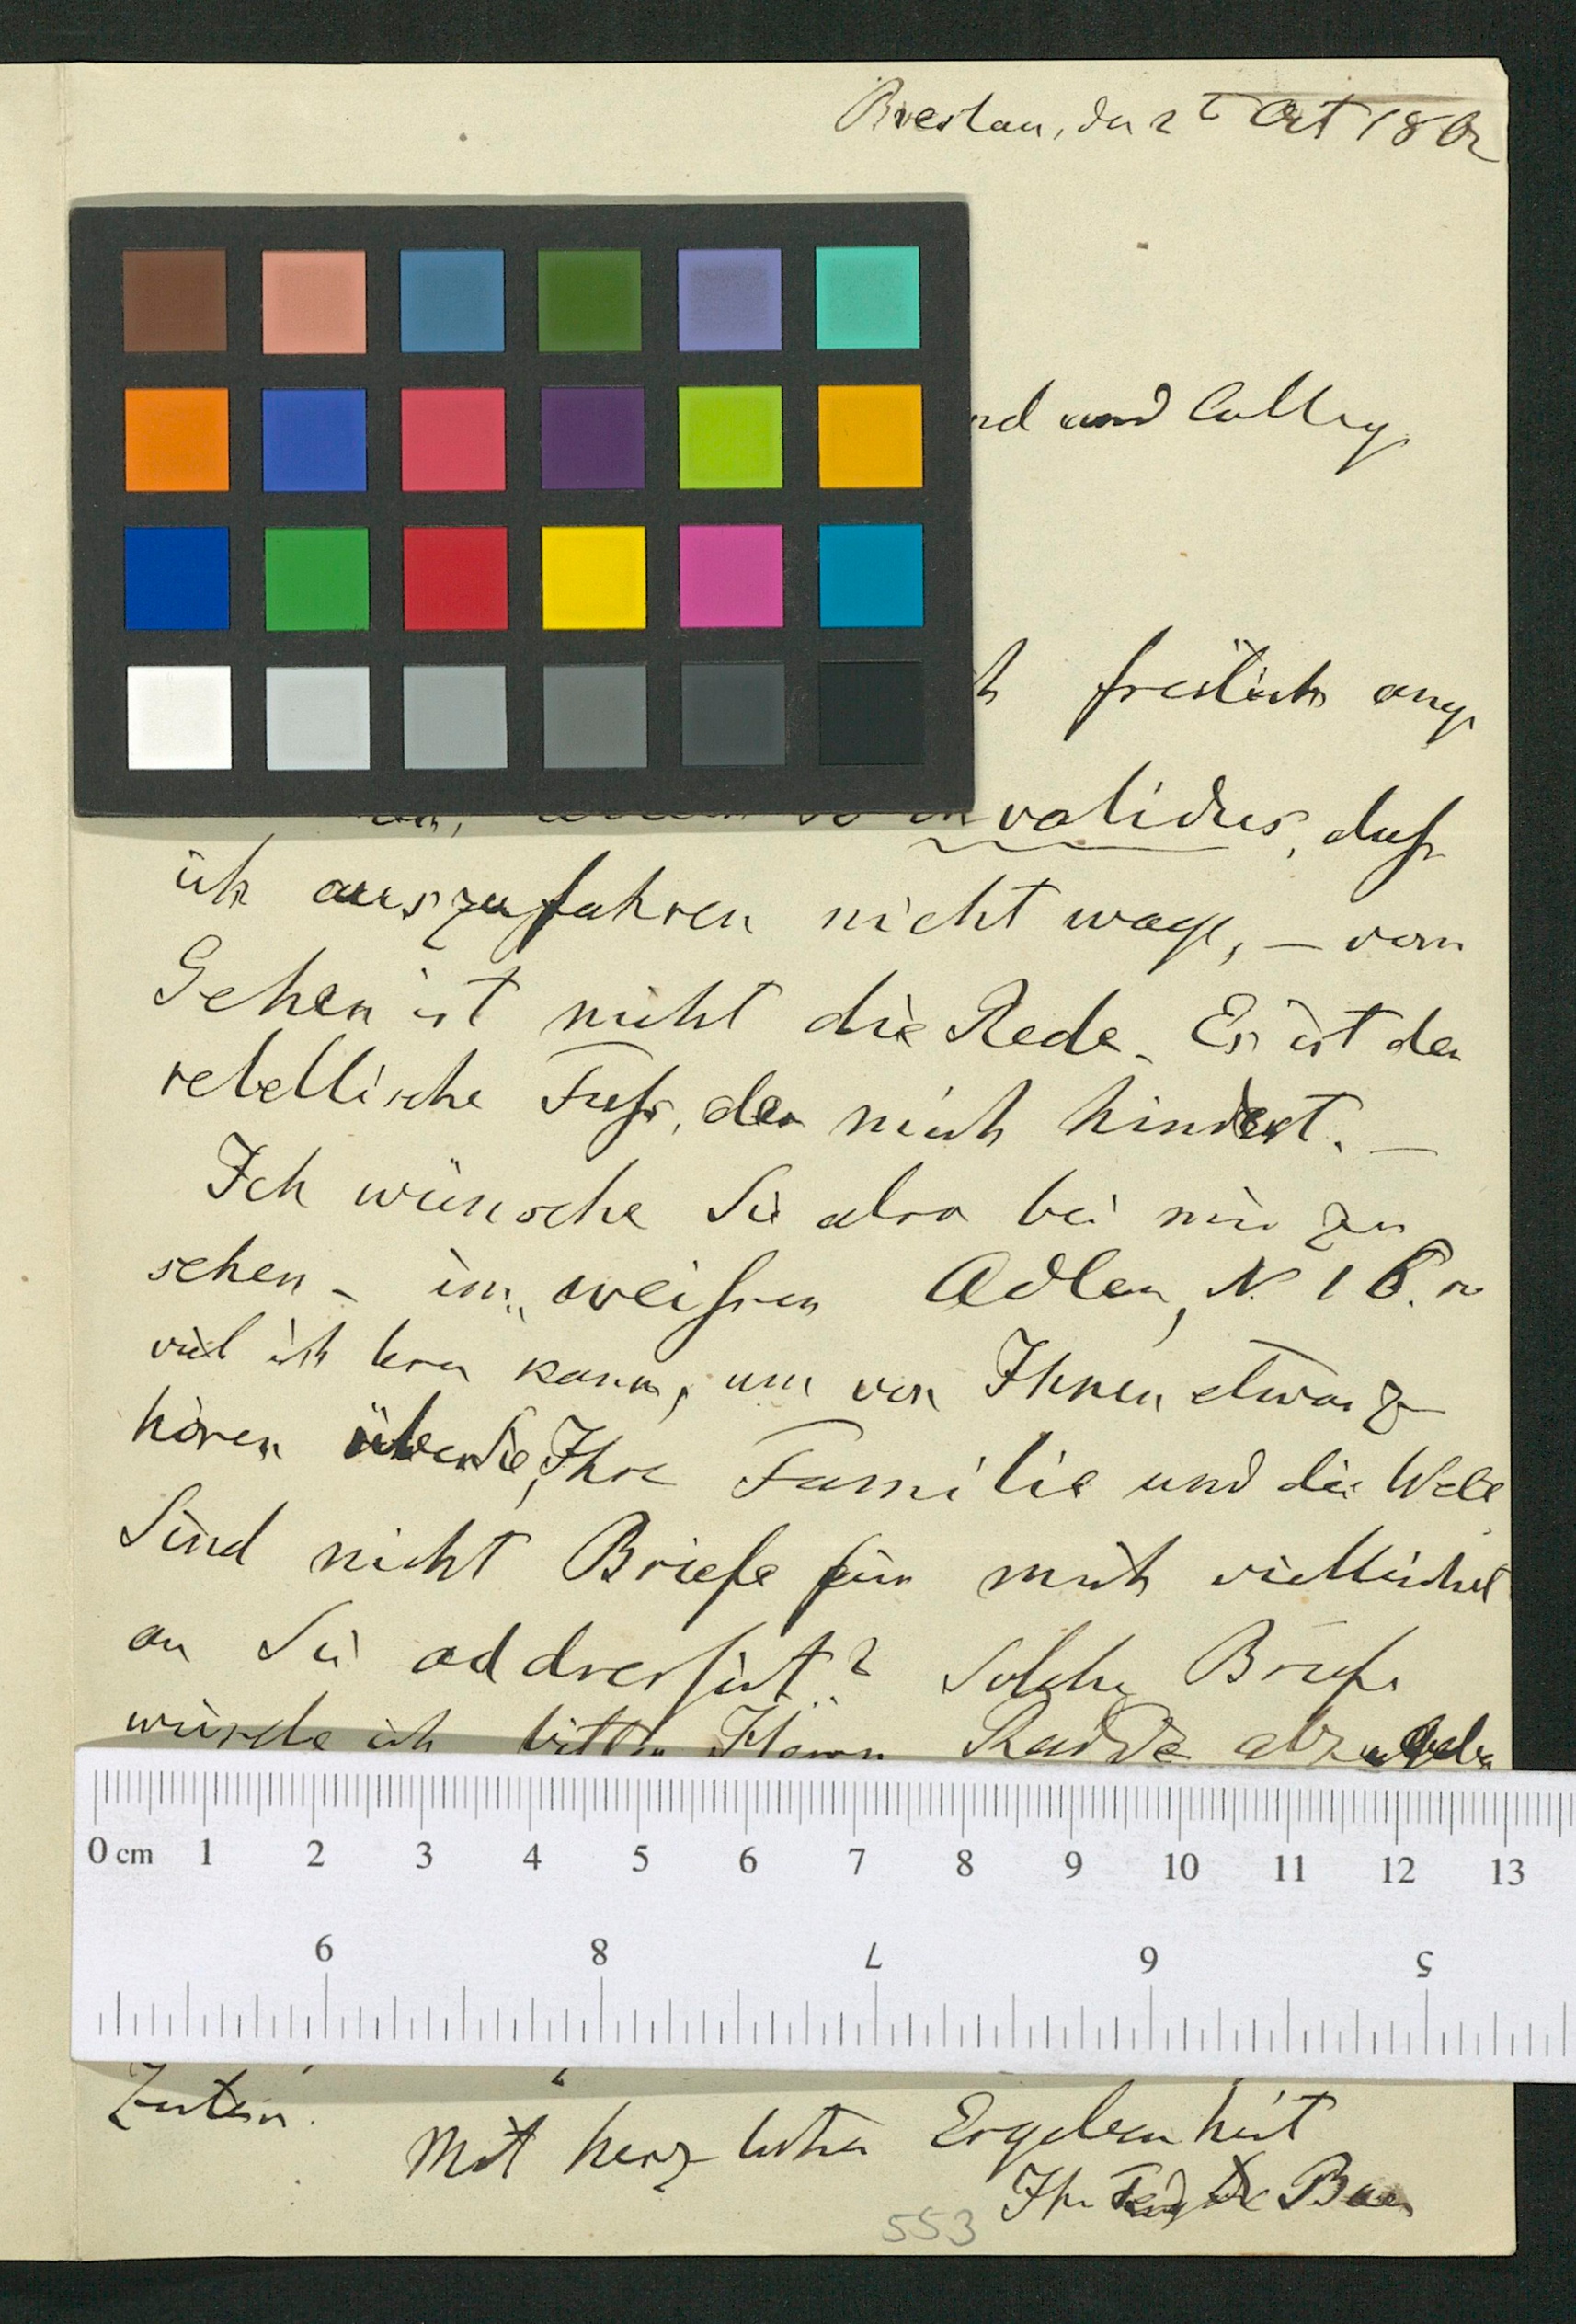 Breslau, den 2t Oct 186
und Colleg
freilich ang
validus, dass
ich auszufahren nicht wage, – vom
Gehen ist nicht die Rede. Es ist der
rebellische Fuss, der mich hindert. –
Ich wünsche Sie also bei mir zu
sehen – im weissen Adler, N 16. so
viel ich kann, um von Ihnen etwas z
hören über Sie, Ihre Familie und die Welt
Sind nicht Briefe für mich vielleicht
an Sie addressirt? Solche Briefe
würde ich bitten Herrn Radde abzugeben
0 cm 1 2 3 4 5 6 7 8 9 10 11 12 13
9 8 7 6 5
Mit herzlicher Ergebenheit
Ihr Baer
553